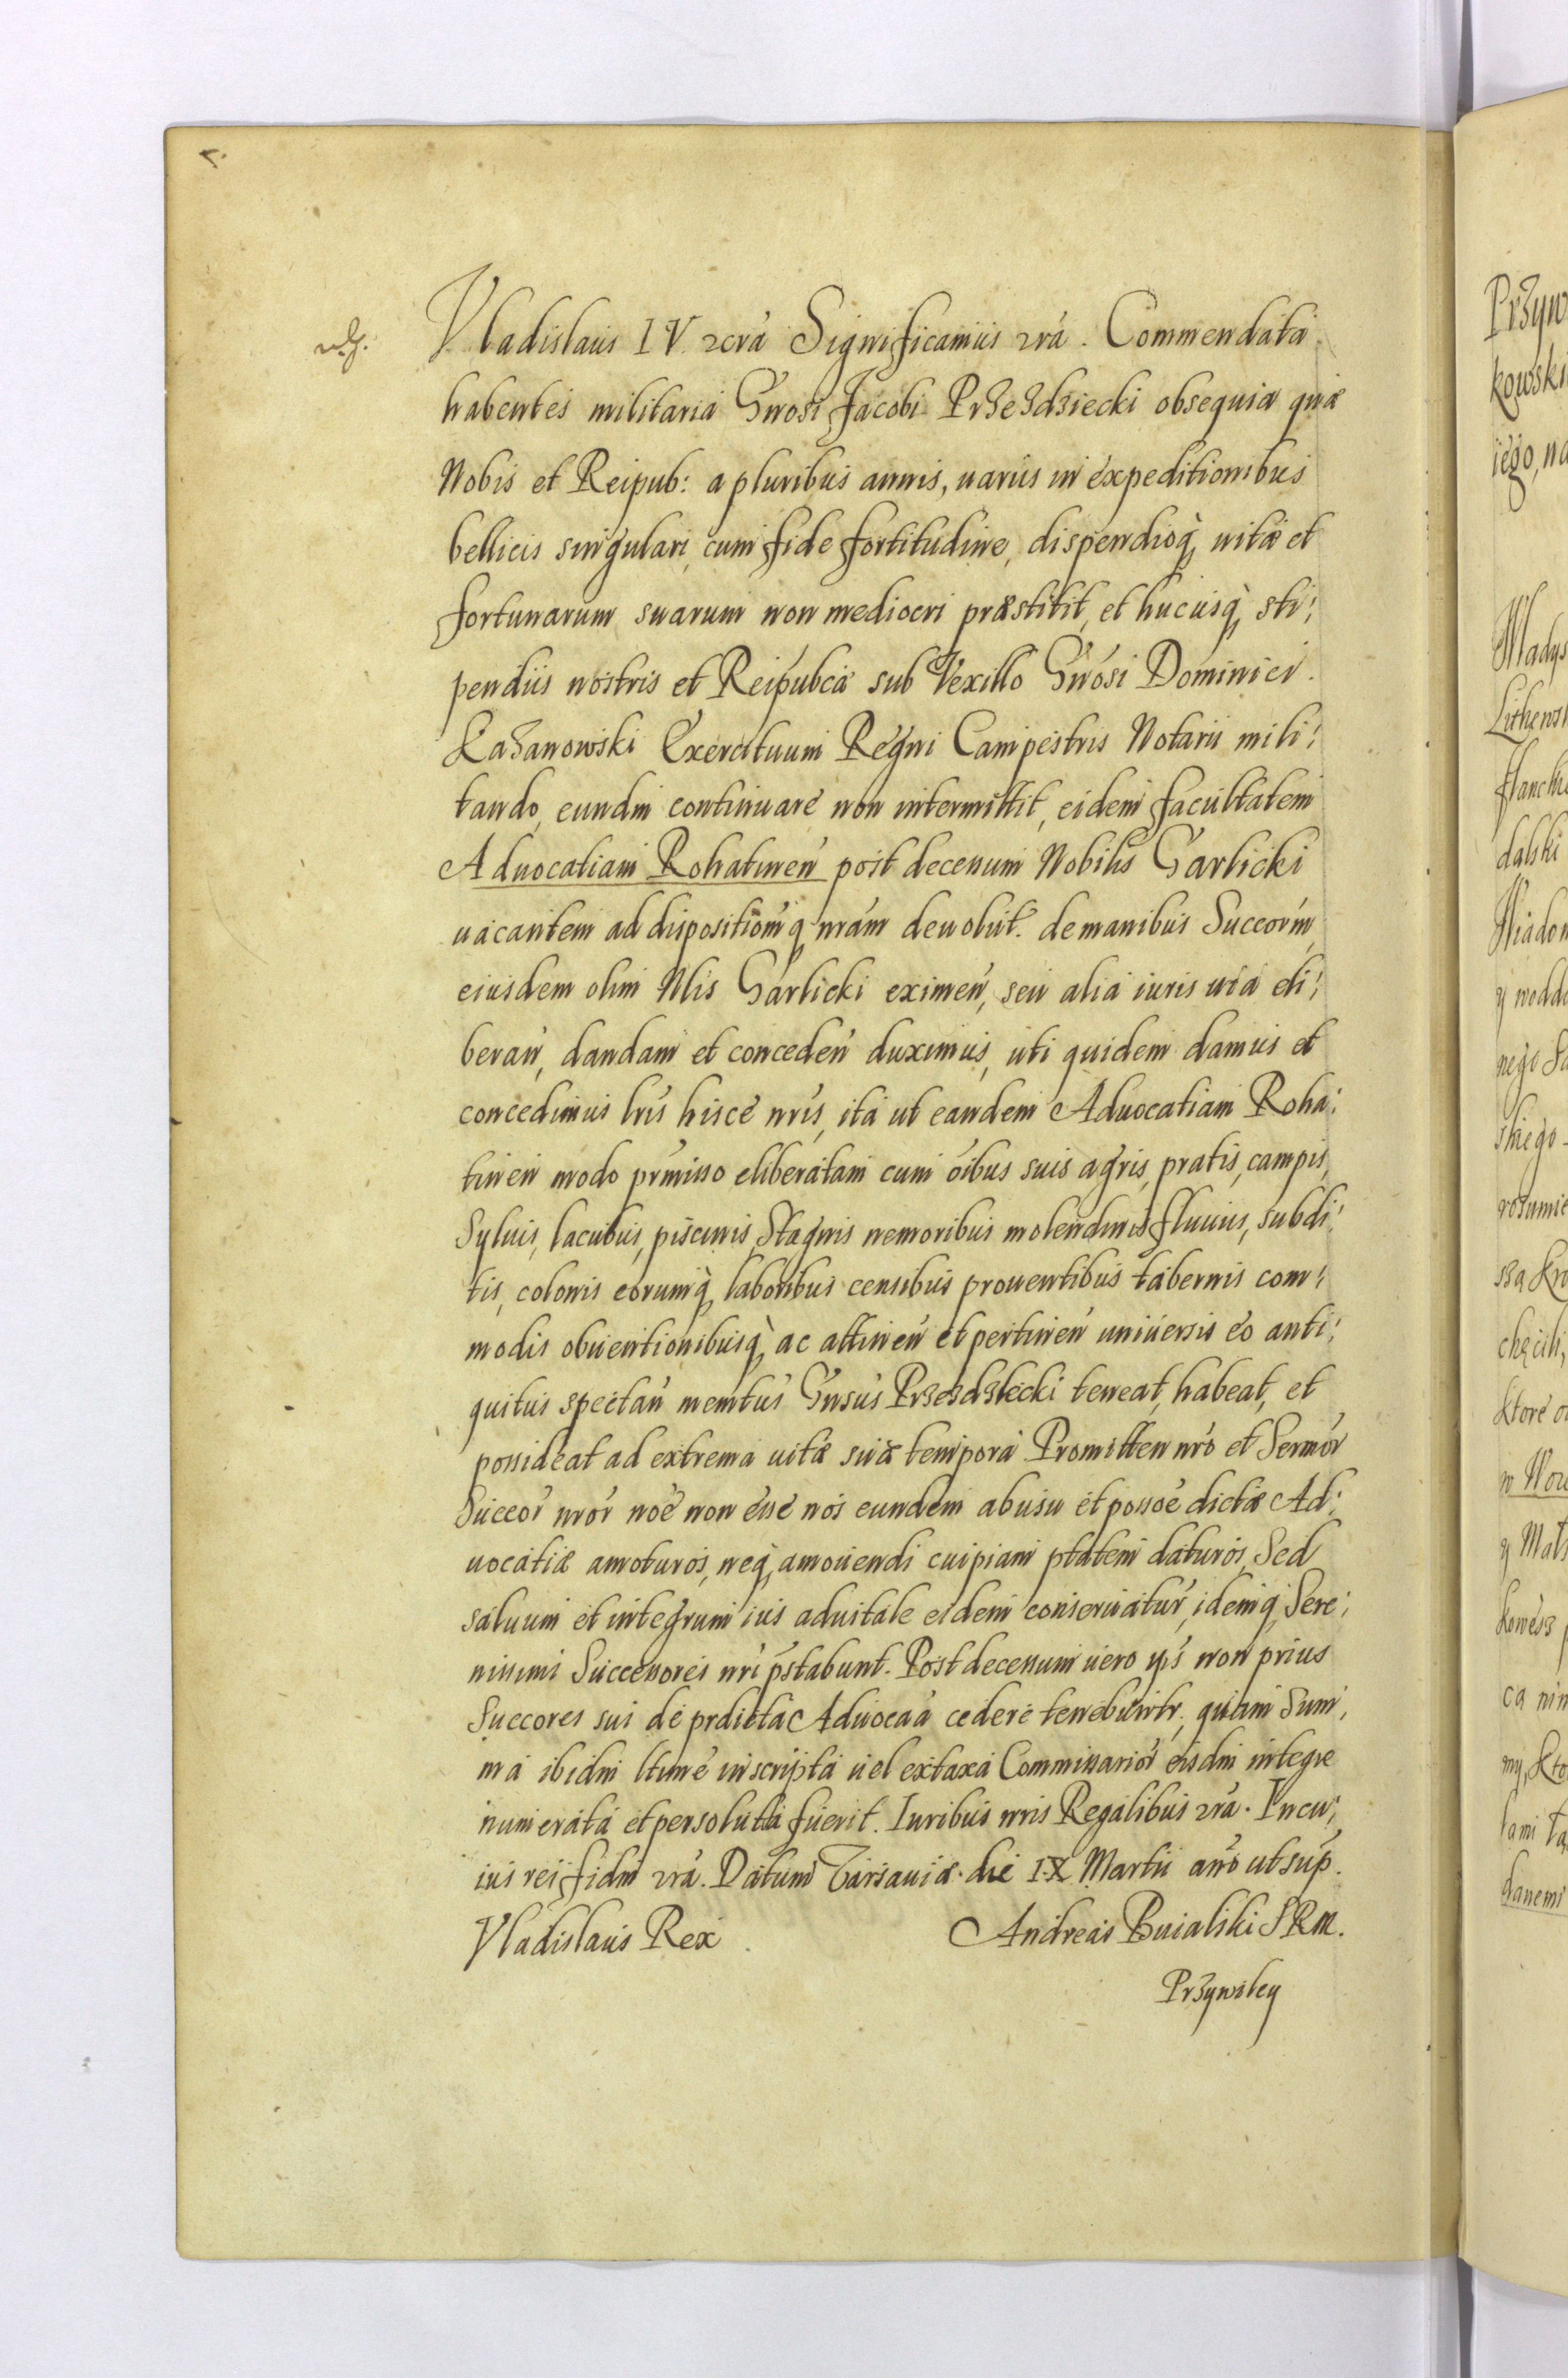 Vladislaus IV. &cra Significamus &ra. Commendata
habentes militaria Gnosi Jacobi Przezdziecki obsequia quæ
Nobis et Reipub: a pluribus annis, uariis in expeditionibus
bellicis singulari, cum fide fortitudine, dispendioq, uitæ et
fortunarum suarum non mediocri præstitit, et hucusq, sti:
pendiis nostris et Reipubcæ sub Vexillo Gnosi Dominici
Kazanowski Exercituum Regni Campestris Notarii mili:
tando, eundm continuare non intermittit, eidem facultatem
Aduocatiam Rohatinen post decenum Nobilis Garlicki
uacantem ad dispositionmq nram deuolut. de manibus Succorum
eiusdem olim Nlis Garlicki eximen, seu alia iuris uia eli:
beran, dandam et conceden duximus, uti quidem damus et
concedimus lris hisce nris, ita ut eandem Aduocatiam Roha:
tinen modo prmisso eliberatam cum oibus suis agris, pratis, campis,
Syluis, lacubus, piscinis, Stagnis nemoribus molendinis fluuiis, subdi:
tis, colonis eorumq, laboribus censibus prouentibus tabernis com:
modis obuentionibusq, ac attinen et pertinen uniuersis eo anti:
quitus spectan memtus Gnsus Przezdziecki teneat, habeat, et
possideat ad extrema uitæ suæ tempora Promitten nro et Sermor
Succor nror noe non esse nos eundem ab usu et possoe dictæ Ad:
uocatiæ amoturos, neq, amouendi cuipiam ptatem daturos, Sed
saluum et integrum ius aduitale eidem conseruatur, idemq Sere:
nissimi Successores nri pstabunt. Post decessum uero ips non prius
Succores sui de prdicta Aduocaa cedere tenebuntr, quam Sum:
ma ibidm ltime inscripta uel ex taxa Commissarior eisdm integre
numerata et persoluta fuerit. Iuribus nris Regalibus &ra. In cu:
ius rei fidm &ra. Datum Varsauiæ. die IX Martii anno ut sup.
Vladislaus Rex Andreas Buialski SRM.
Przywiley